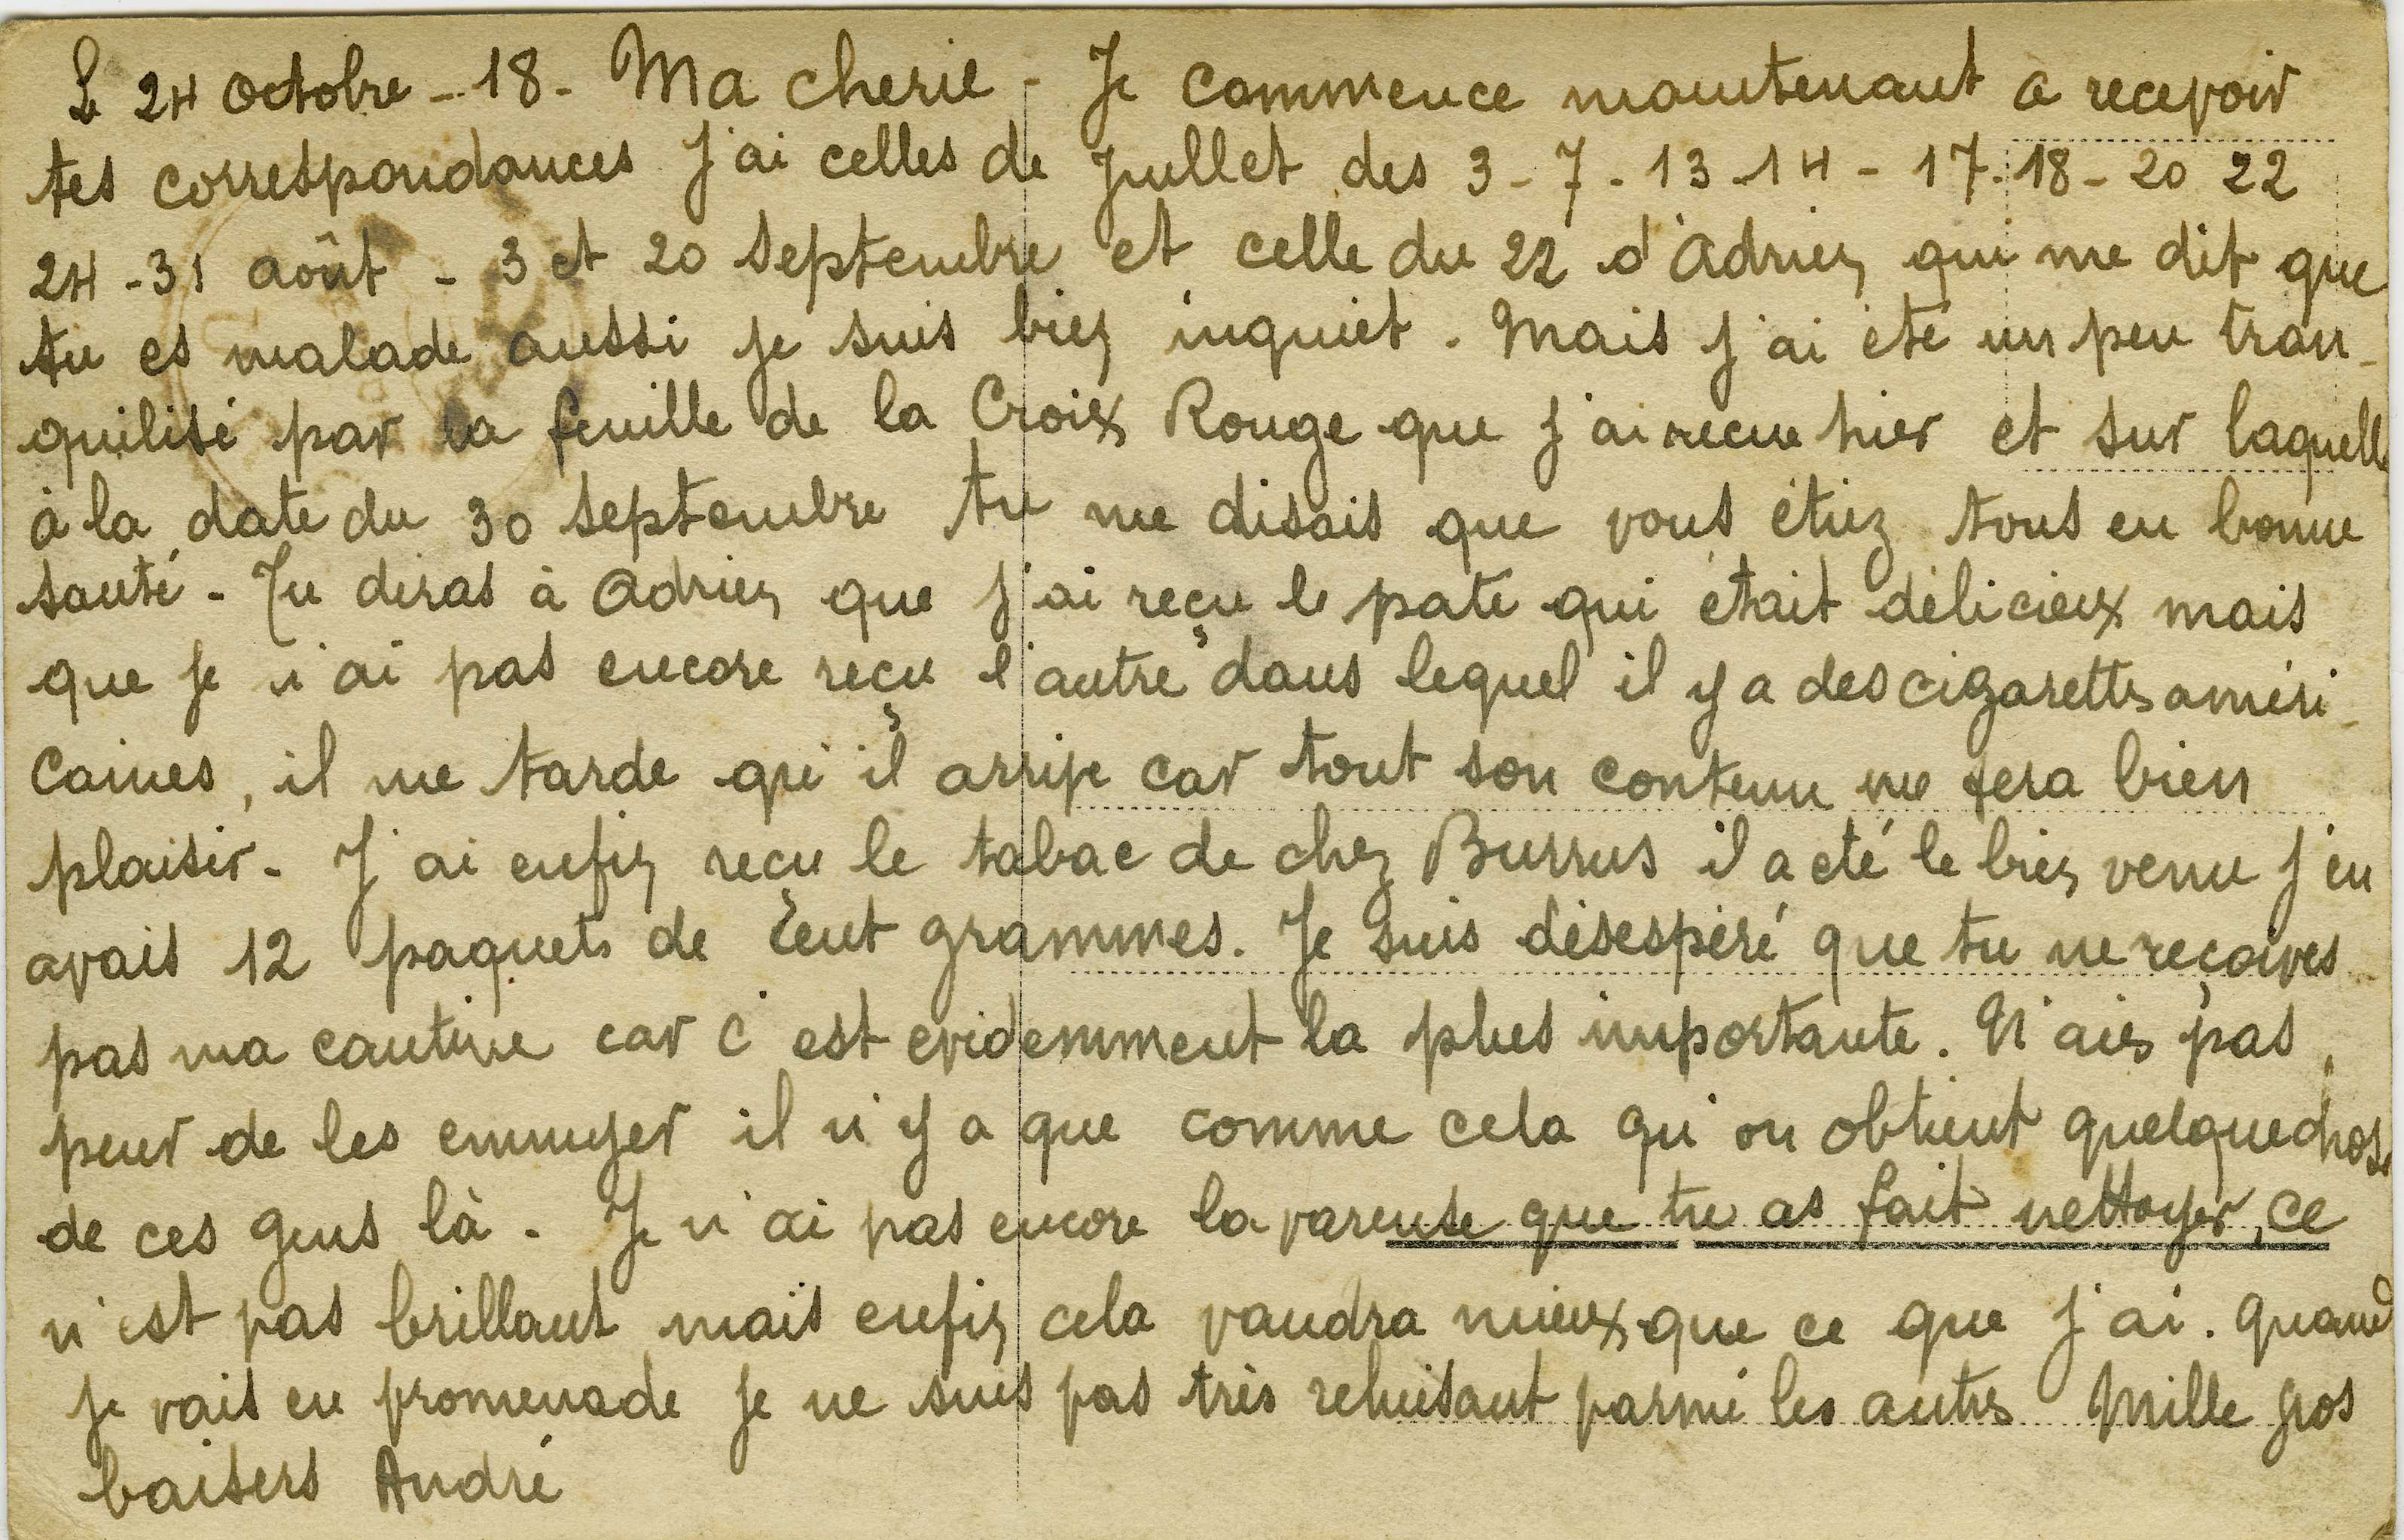 Le 24 Octobre - 18 - Ma cherie - Je commence maintenant a recevoir
tes correspondances J'ai celles de Juillet des 3 - 7 - 13 - 14 - 17 - 18 - 20 22
24 - 31 août - 3 et 20 Septembre et celle du 22 d'Adrien qui me dit que
tu es malade aussi je suis bien inquiet. Mais j'ai été un peu tran-
quilisé par la feuille de la Croix Rouge que j'ai recue hier et sur laquelle
à la date du 30 Septembre tu me disais que vous étiez tous en bonne
santé - Tu diras à Adrien que j'ai reçu le paté qui était délicieux mais
que je n'ai pas encore reçu l'autre dans lequel il y a des cigarettes améri-
caines, il me tarde qu'il arrive car tout son contenu me fera bien
plaisir - J'ai enfin reçu le tabac de chez Burrus il a été le bien venu j'en
avais 12 paquets de cent grammes. Je suis désespéré que tu ne reçoives
pas ma cantine car c'est evidemment la plus importante. N'aies pas
peur de les ennuyer il n'y a que comme cela qu'on obtient quelquechose
de ces gens là - Je n'ai pas encore la vareuse que tu as fait nettoyer, ce
n'est pas brillant mais enfin cela vaudra mieux que ce que j'ai. Quand
je vais en promenade je ne suis pas très reluisant parmi les autres Mille gros
baisers André